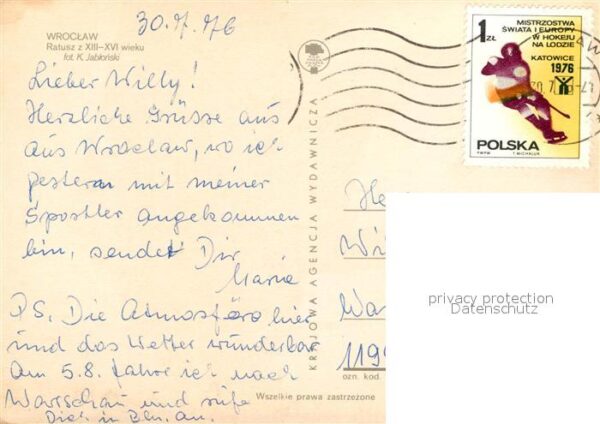 30.7.76
WROCŁAW
Ratusz z XIII–XVI wieku
fot. K. Jabłoński
Lieber Willy!
Herzliche Grüsse aus
aus Wrocław, wo ich
gestern mit meiner
Sportler angekommen
bin, sendet Dir
Maria
PS. Die Atmosfäre hier
und das Wetter wunderbar
Am 5.8. fahre ich nach
Warschau und rufe
Dich in an.
KRAJOWA AGENCJA WYDAWNICZA
1 ZŁ
MISTRZOSTWA
ŚWIATA I EUROPY
W HOKEJU
NA LODZIE
KATOWICE
1976
POLSKA
PWPW T. MICHALUK
He
Wi
War
1199
ozn. kod.
Wszelkie prawa zastrzeżone
privacy protection
Datenschutz